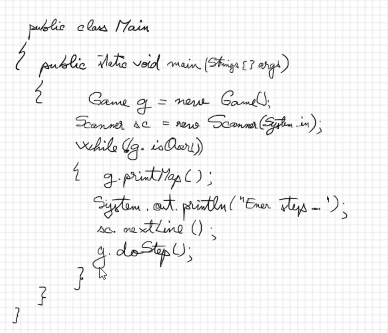 public class Main
{ public static void main (Strings [] args)
{
Game g = new Game();
Scanner sc = new Scanner(System.in);
while (!g.isOver())
{ g.printMap();
System.out.println("Ener steps -");
sc.nextLine();
g.doStep();
}
}
}